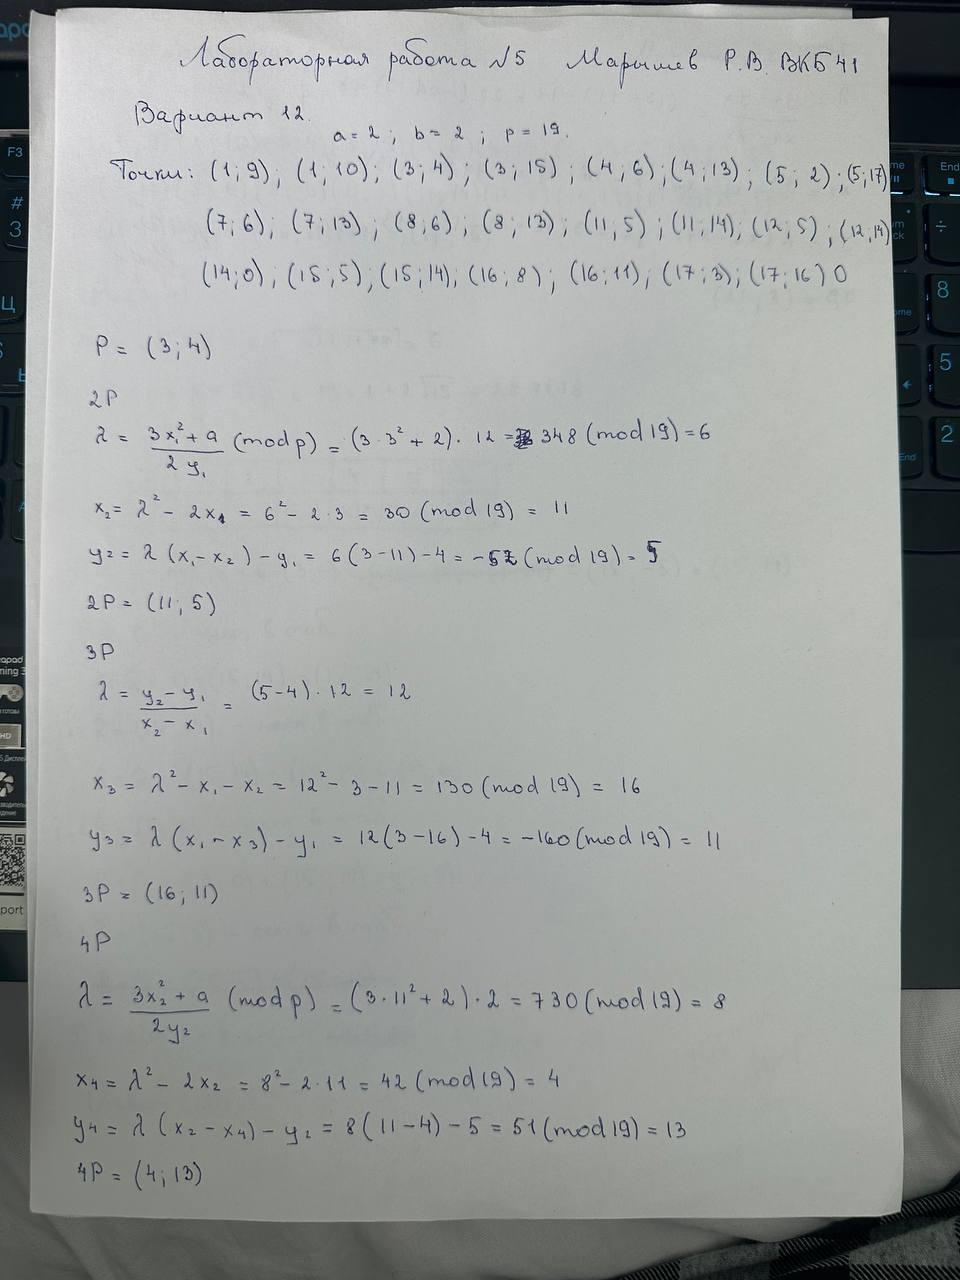 Лабораторная работа №5 Марышев Р.В. ВКБ41
Вариант 12.
a = 2 ; b = 2 ; p = 19.
Точки: (1; 9); (1; 10); (3; 4); (3; 15) ; (4; 6) ; (4; 13) ; (5; 2) ; (5; 17)
(7; 6); (7; 13) ; (8; 6) ; (8; 13) ; (11; 5) ; (11; 14); (12; 5) ; (12; 14)
(14; 0) ; (15; 5) ; (15; 14) ; (16; 8) ; (16; 11) ; (17; 3) ; (17; 16) O
P = (3; 4)
2P
λ = (3x₁² + a)/(2y₁) (mod p) = (3·3² + 2)· 12 = 348 (mod 19) = 6
x₂ = λ² - 2x₁ = 6² - 2·3 = 30 (mod 19) = 11
y₂ = λ (x₁ - x₂) - y₁ = 6(3-11) - 4 = -52 (mod 19) = 5
2P = (11; 5)
3P
λ = (y₂ - y₁)/(x₂ - x₁) = (5-4)·12 = 12
x₃ = λ² - x₁ - x₂ = 12² - 3 - 11 = 130 (mod 19) = 16
y₃ = λ (x₁ - x₃) - y₁ = 12(3-16) - 4 = -160 (mod 19) = 11
3P = (16; 11)
4P
λ = (3x₂² + a)/(2y₂) (mod p) = (3·11² + 2)·2 = 730 (mod 19) = 8
x₄ = λ² - 2x₂ = 8² - 2·11 = 42 (mod 19) = 4
y₄ = λ (x₂ - x₄) - y₂ = 8(11-4) - 5 = 51 (mod 19) = 13
4P = (4; 13)
F3
#
3
Ц
End
÷
8
5
2
End
HD
port